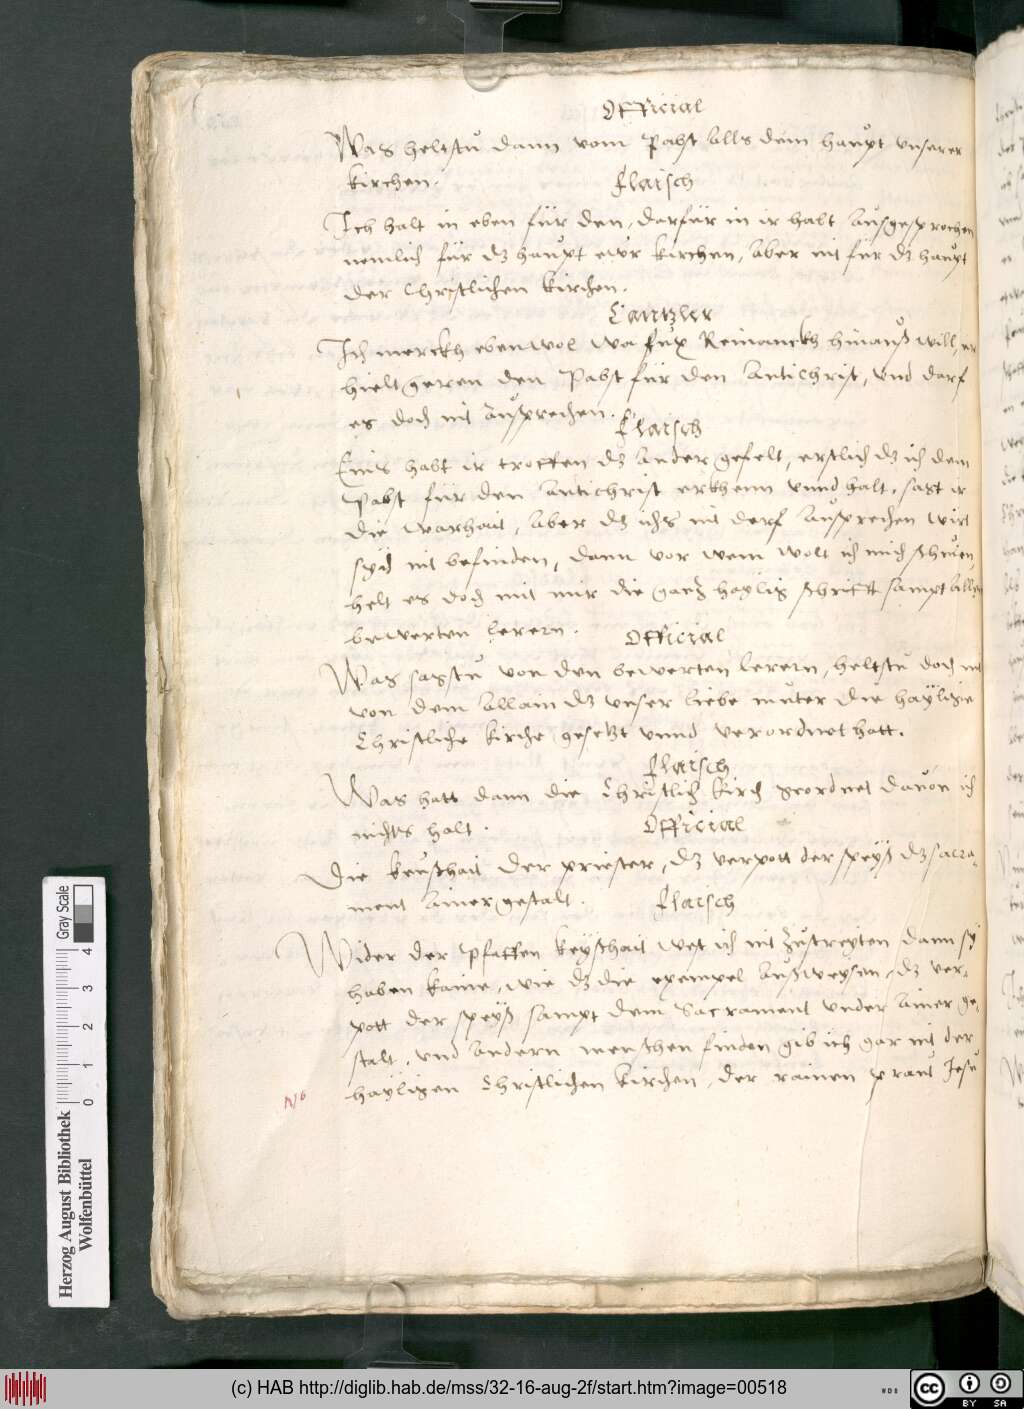 Official
Was heltstu dann vom Pabst alls dem haupt unserer
kirchen.
Flaisch
Ich halt in eben für den, darfür in ir habt außgesprochen
nemlich für dz haupt ewr kirchen, aber nit für dz haupt
der Christlichen kirchen.
Cantzler
Ich merckh eben wol wa fux Reinanckh hinauß will, er
hielt geren den Pabst für den Antichrist, und darf
es doch nit außprechen.
Flaisch
Eins habt ir troffen dz ander gefelt, erstlich dz ich dem
Pabst für den Antichrist erkhenn unnd halt, sagt ir
die warhait, aber dz ichs nit derf außprechen wirt
sich nit befinden, dann vor wem wolt ich mich schuen,
helt es doch mit mir die gantz haylig schrifft sampt allen
bewerten lerern.
Official
Was sagstu von den bewerten lerern, heltstu doch nit
von dem allain dz unser liebe muter die haylige
Christliche kirche gesetzt unnd verordnet hatt.
Flaisch
Was hatt dann die Christlich kirch geordnet davon ich
nichts halt.
Official
Die keuschait der priester, dz verpott der speyß dz sacra-
ment ainer gestalt.
Flaisch
Wider der Pfaffen keyschait west ich nit zustreyten dann sy
haben kaine, wie dz die exempel außweysen, dz ver-
pott der speyß sampt dem Sacrament under ainer ge-
stalt, und andern menschen finden gib ich gar nit der
hayligen Christlichen kirchen, der rainen praut Jesu
Herzog August Bibliothek
Wolfenbüttel
0 1 2 3 4
Gray Scale
(c) HAB http://diglib.hab.de/mss/32-16-aug-2f/start.htm?image=00518
WDB
CC BY SA